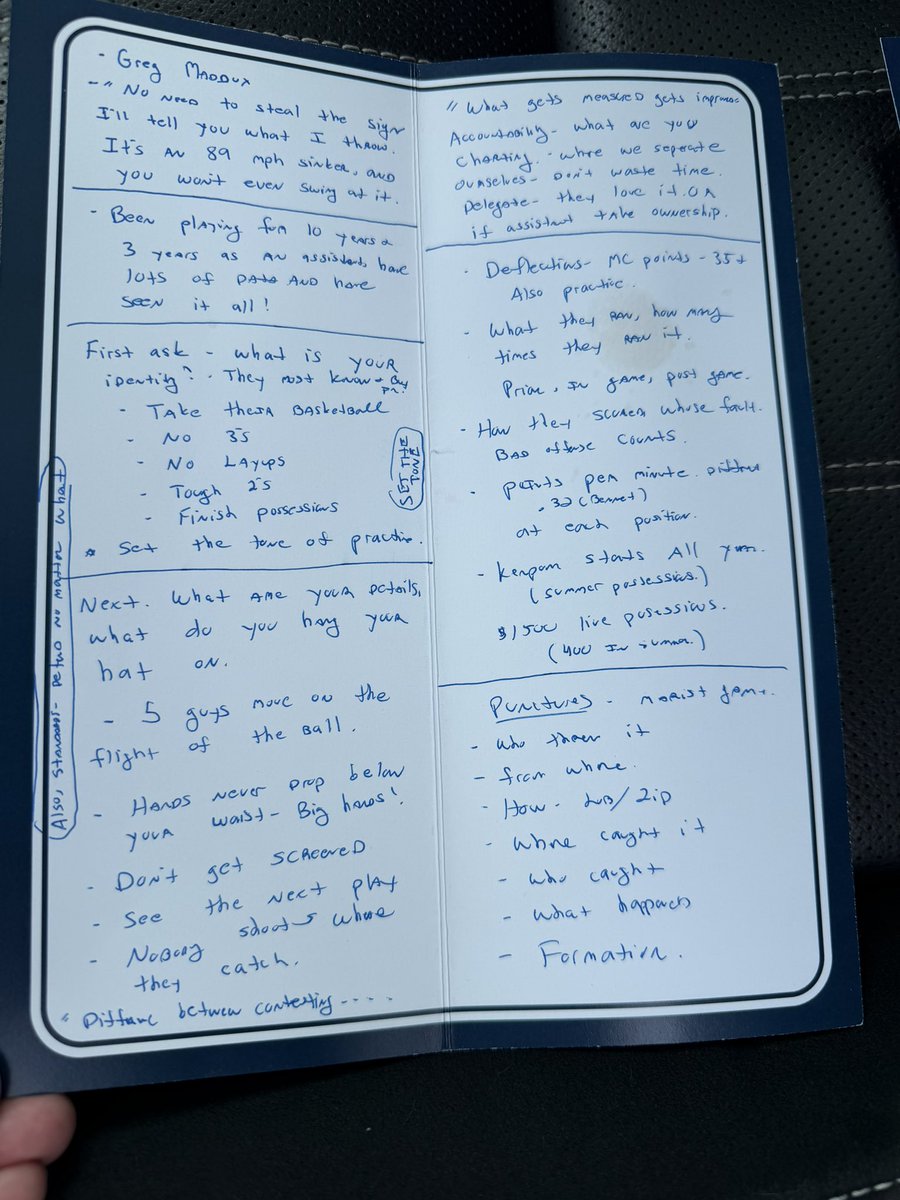 - Greg Maddux
- "No need to steal the sign
I'll tell you what I throw.
It's an 89 mph sinker, and
you won't even swing at it.
- Been playing for 10 years &
3 years as an assistant, have
lots of data and have
seen it all!
First ask - what is your
identity? - They must know
- Take their basketball
- No 3s
- No Layups
- Tough 2s
- Finish possessions
* Set the tone of practice.
SET THE
TONE
Also, standards- no matter what
Next. What are your details,
what do you hang your
hat on.
- 5 guys move on the
flight of the ball.
- Hands never drop below
your waist - Big hands!
- Don't get screened
- See the next play
- Nobody shoots where
they catch.
" Diffanc between contesting ....
" What gets measured gets improve
Accountability - what are you
charting. - where we seperate
ourselves - Don't waste time.
Delegate - they love it. OR
if assistant take ownership.
- Deflections - MC points - 35+
Also practice.
- What they ran, how many
times they ran it.
Prior, in game, post game.
- How they scored whose fault.
Bad offense counts.
- points per minute.
.32 (Bennet)
at each position.
- Kenpom starts All year.
(summer possessions.)
$1500 live posessions.
(400 in summer.)
Punctures - Marist game.
- who threw it
- from where.
- How - Lob/Zip
- Where caught it
- who caught
- what happens
- Formation.